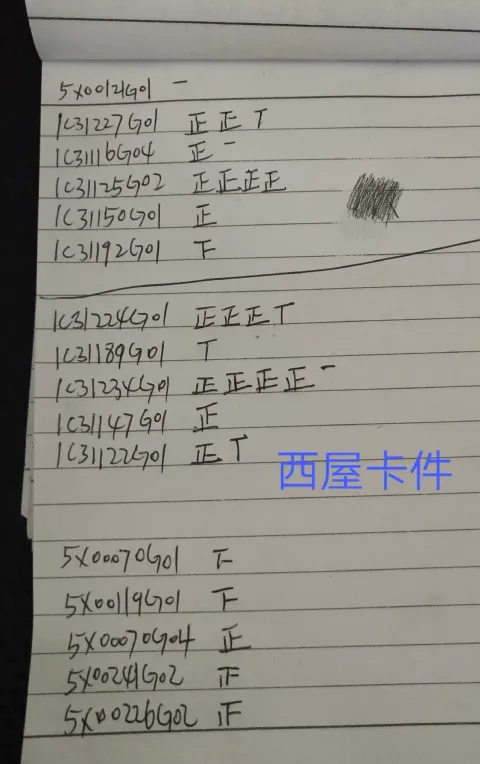 5X00121G01 一
1C31227G01 正正丅
1C31116G04 正一
1C31125G02 正正正正
1C31150G01 正
1C31192G01 下
1C31224G01 正正正丅
1C31189G01 丅
1C31234G01 正正正正一
1C31147G01 正
1C31122G01 正丅
西屋卡件
5X00070G01 下
5X00119G01 下
5X00070G04 正
5X00241G02 正
5X00226G02 正